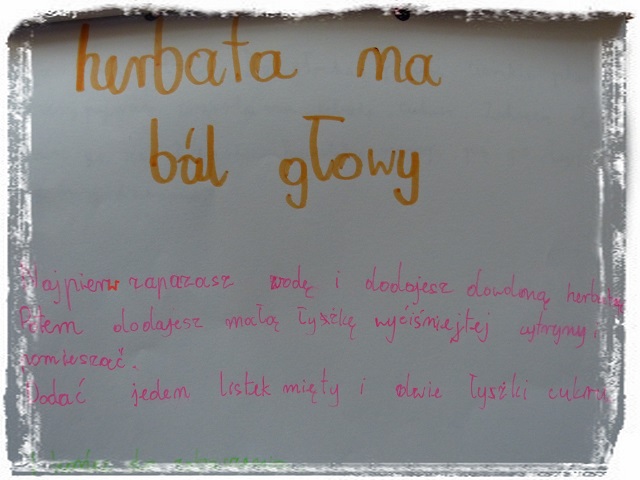 herbata na
ból głowy
Najpierw zaparzasz wodę i dodajesz dowolną herbatę
Potem dodajesz małą łyżkę wyciśniejtej cytryny i
pomieszać.
Dodać jeden listek mięty i dwie łyżki cukru